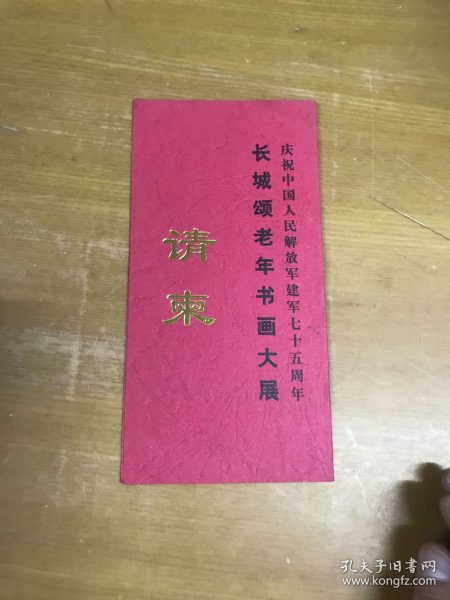 庆祝中国人民解放军建军七十五周年
长城颂老年书画大展
请柬
孔夫子旧书网
www.kongfz.com